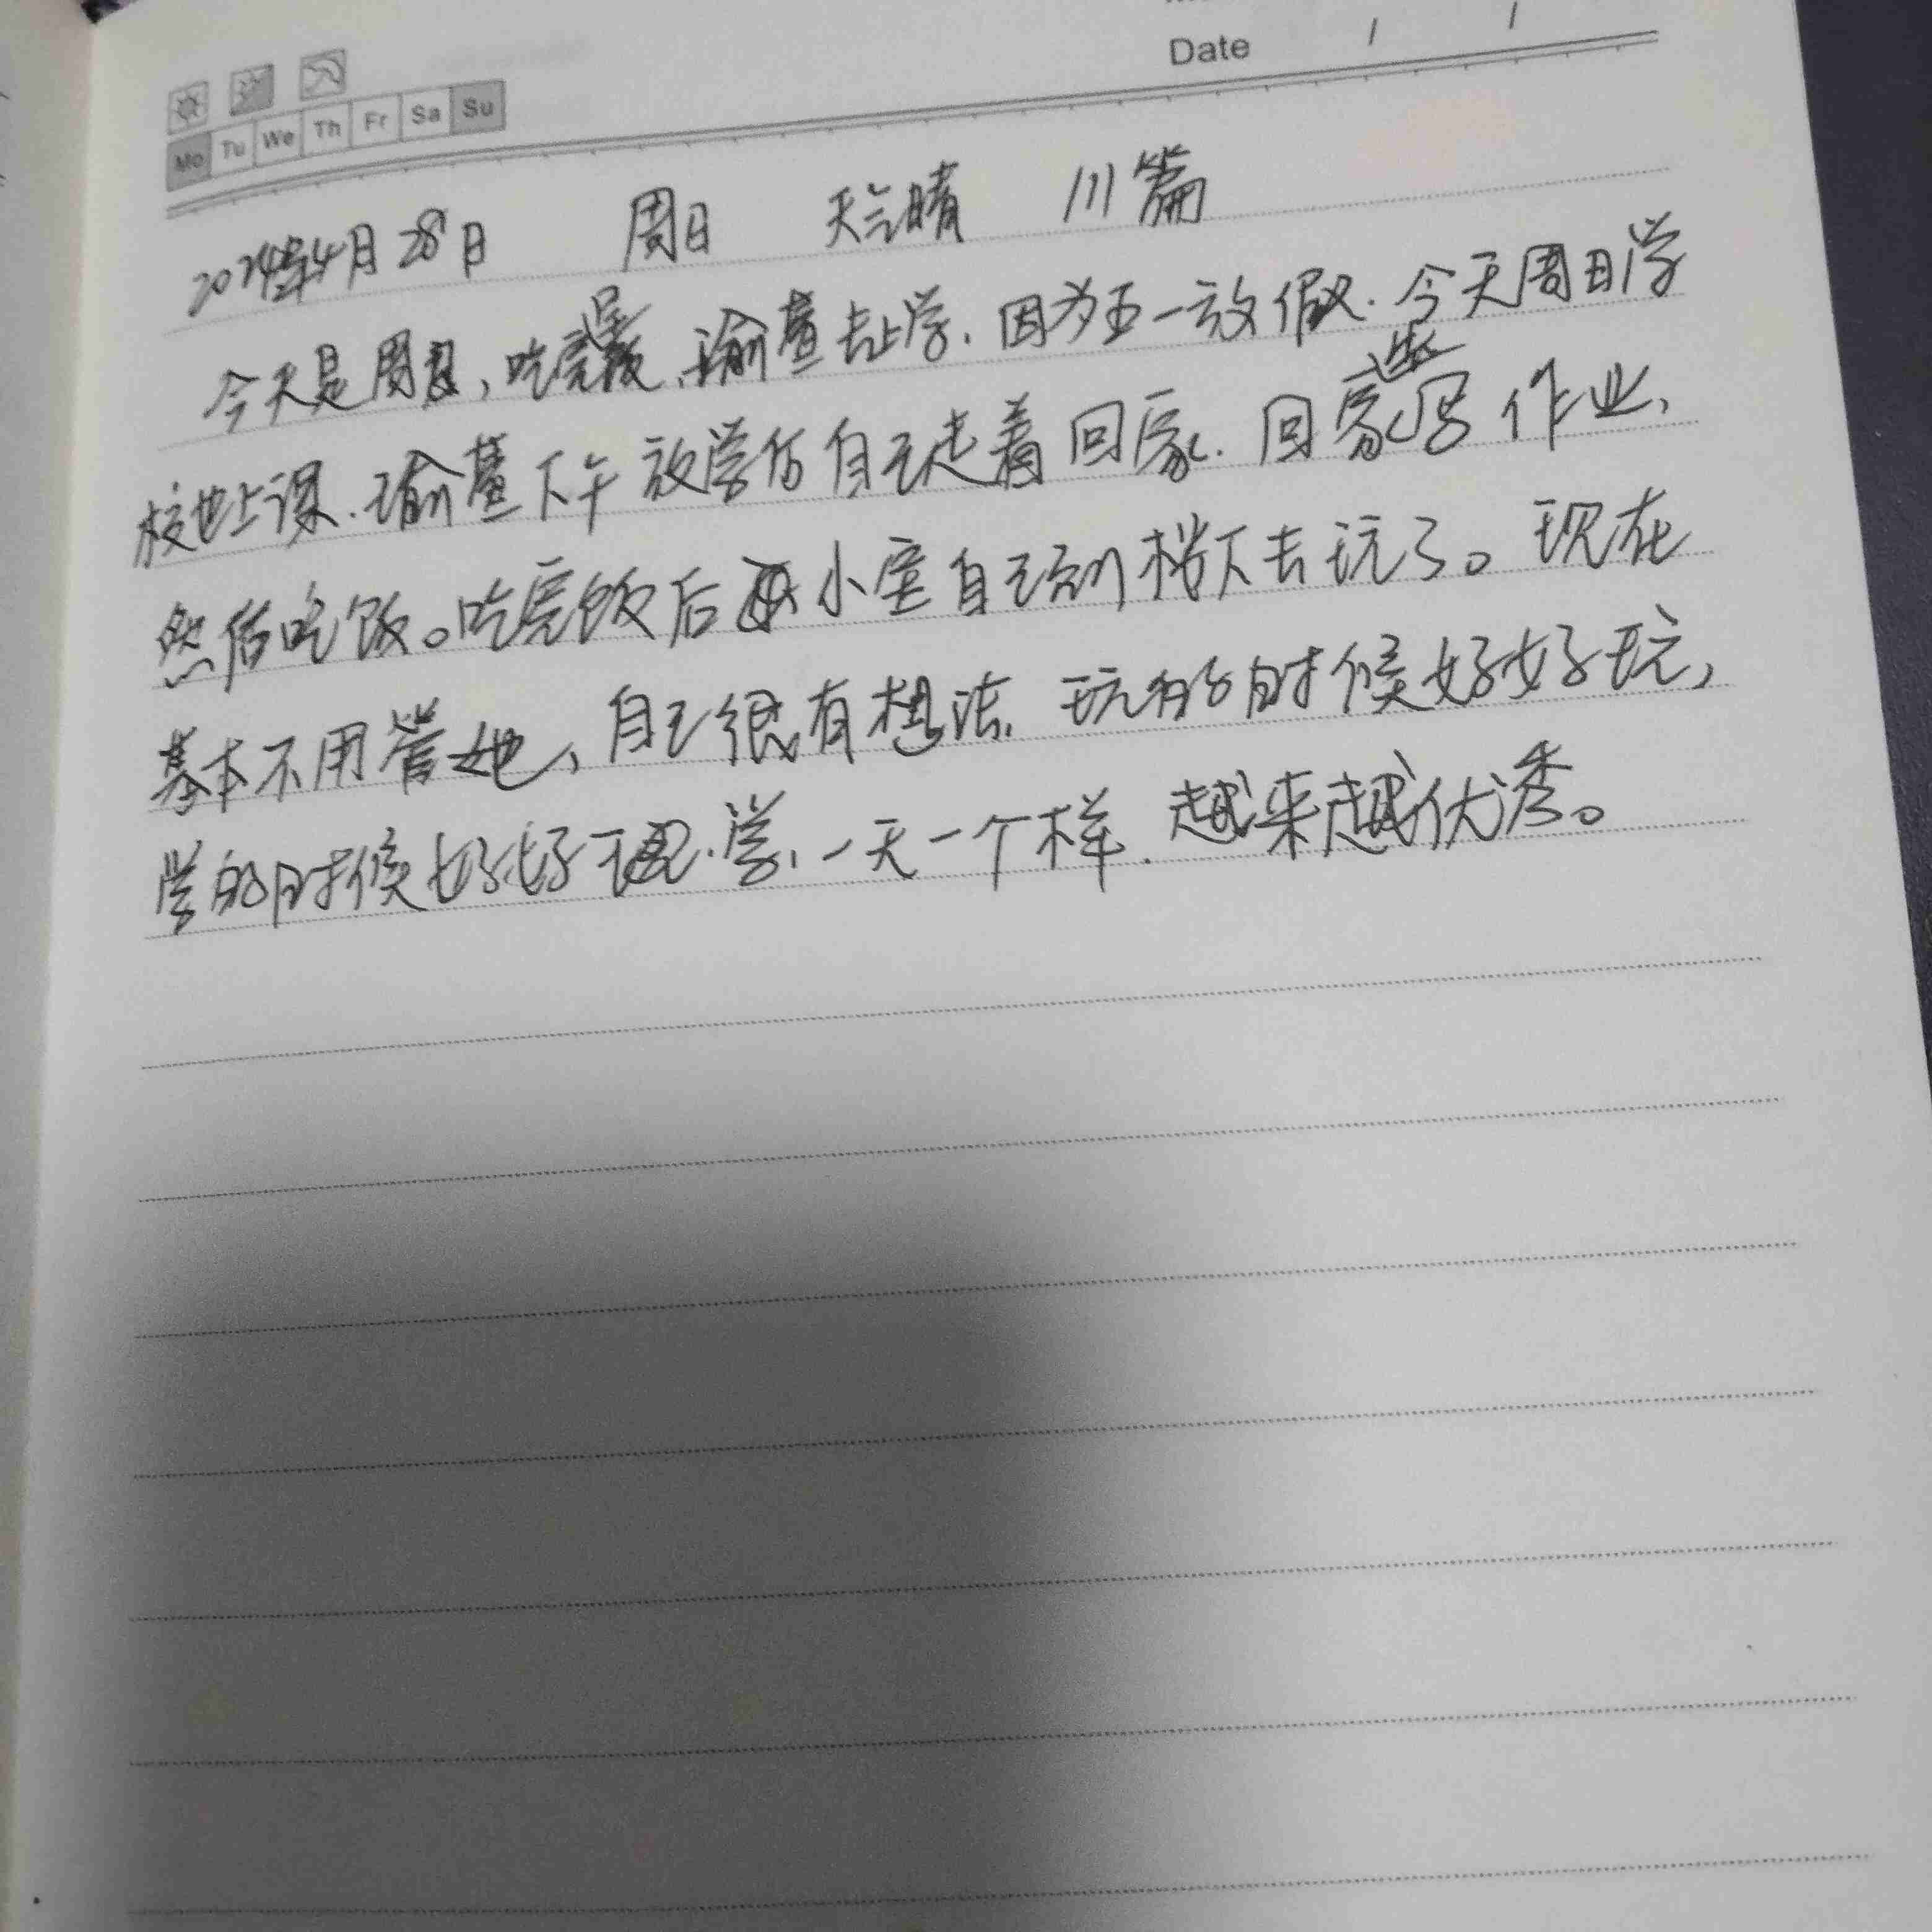 Date / /
Mo Tu We Th Fr Sa Su
2024年4月28日 周日 天气晴 111篇
今天是周日,吃完早饭,瑜萱去上学.因为五一放假.今天周日学
校也上课.瑜萱下午放学后自己走着回家.回家先写作业、
然后吃饭。吃完饭后 小萱自己到楼下去玩了。现在
基本不用管她、自己很有想法.玩的时候好好玩,
学的时候好好学、一天一个样.越来越优秀。